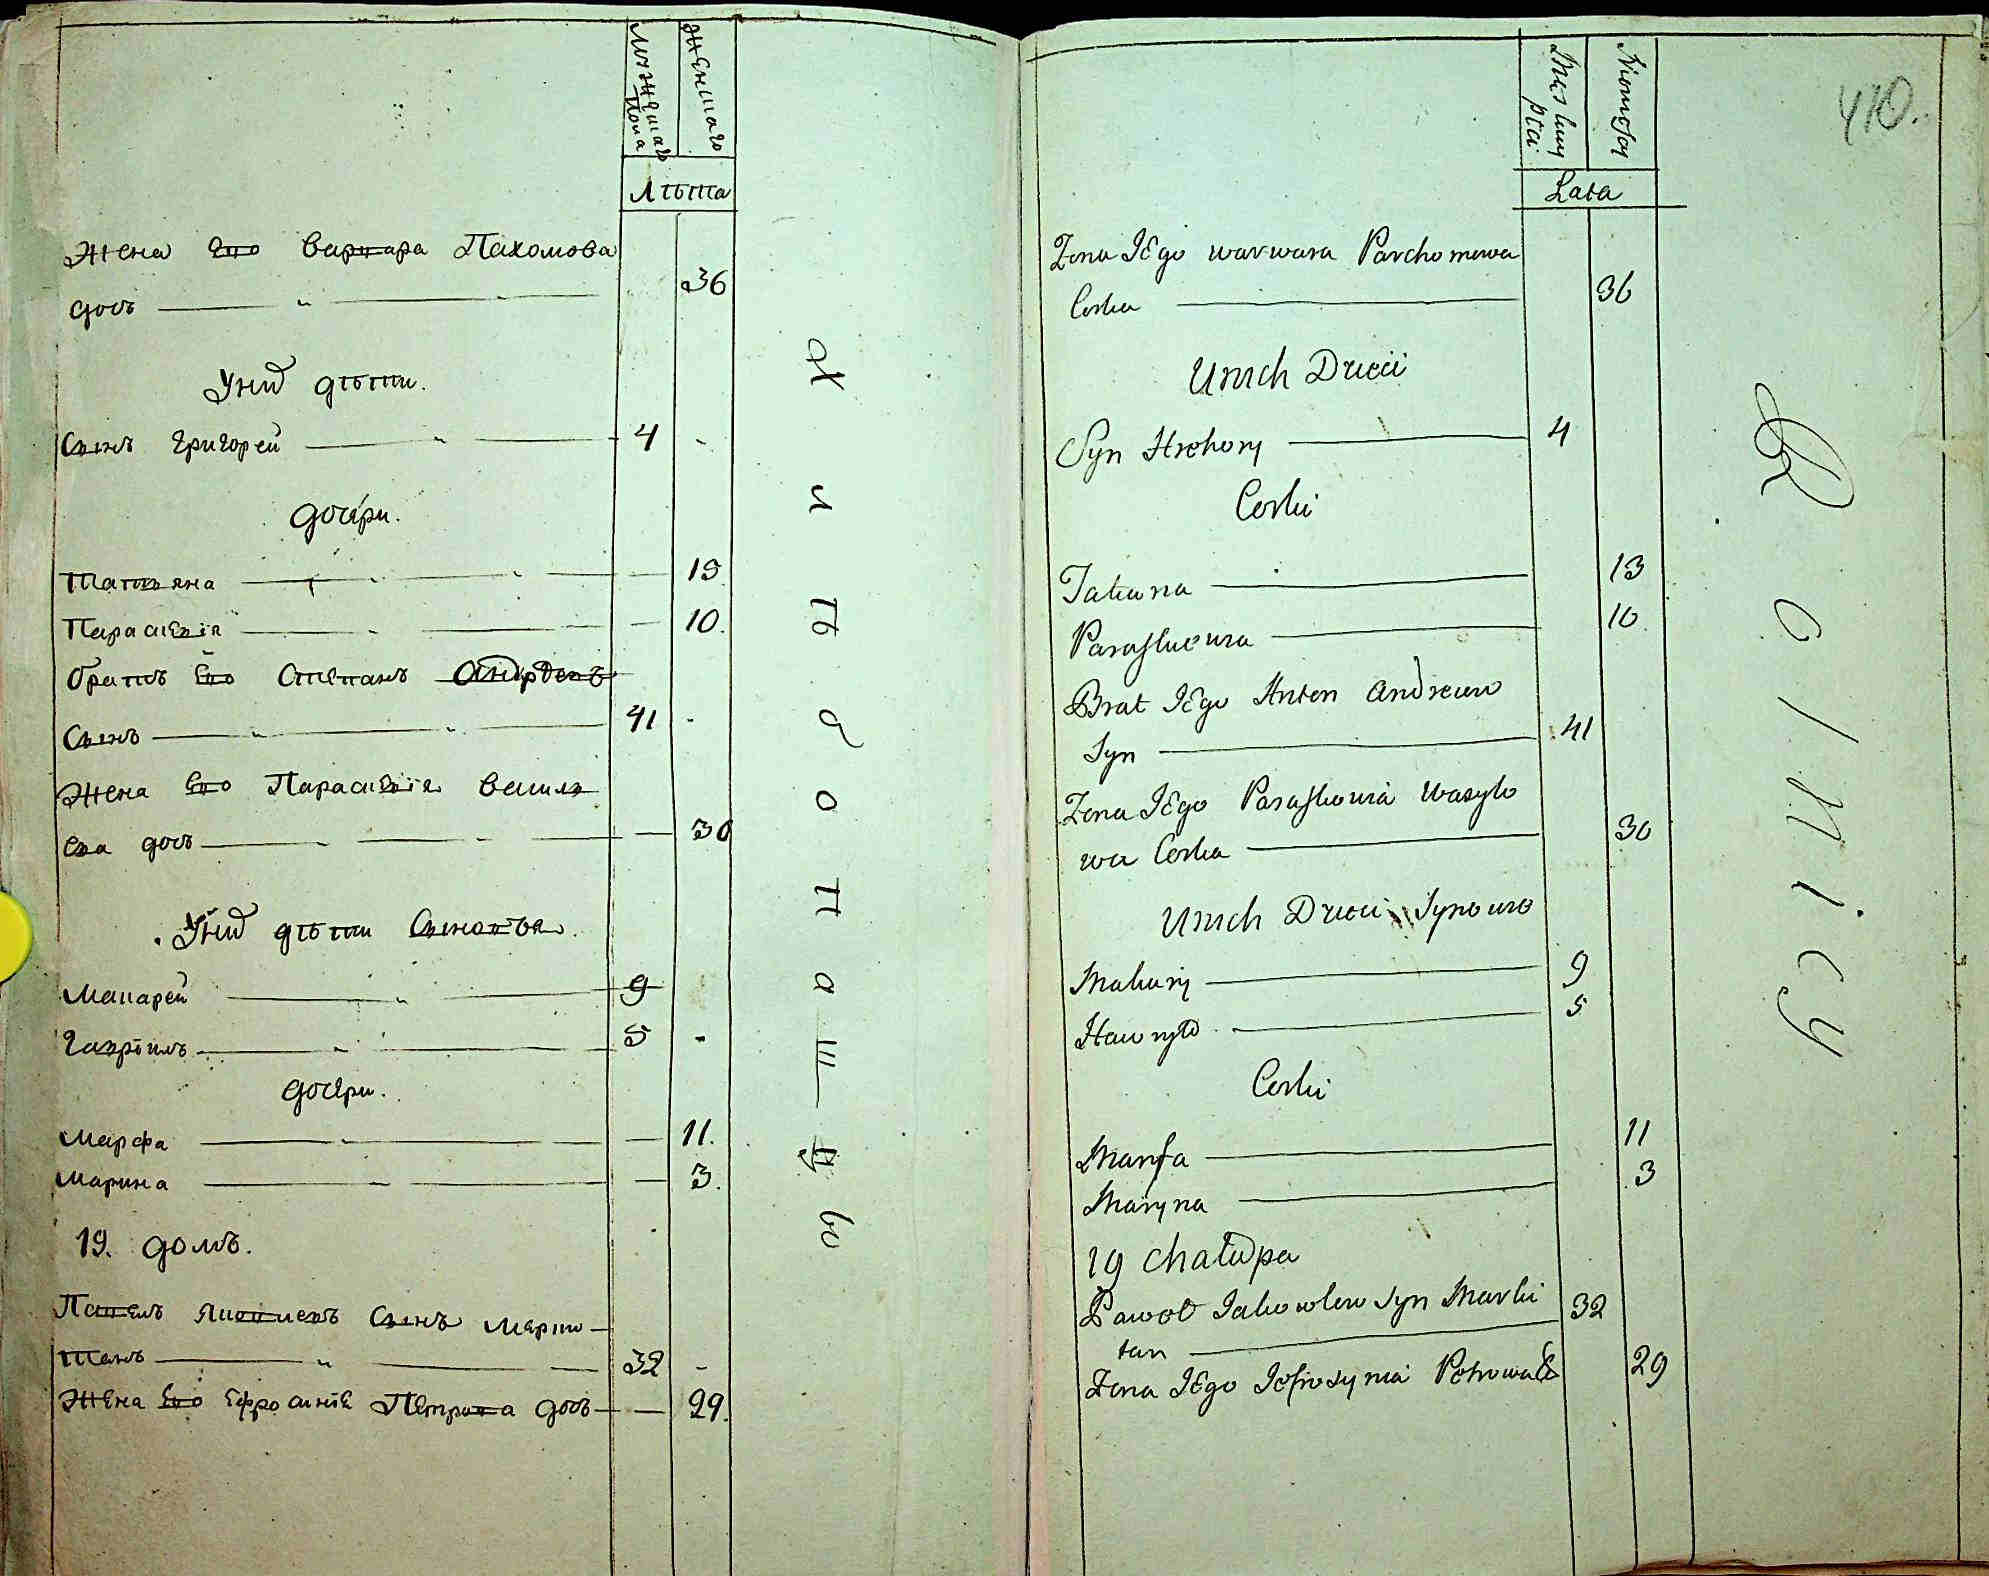 Мужескаго
Пола
Женскаго
Лѣта
Жена Его Варвара Пахомова
дочь 36
Унихъ дѣти.
Сынъ Григорей 4
дочери.
Татьяна 13
Параскевія 10.
братъ Его Степанъ Андреевъ
Сынъ 41
Жена Его Параскевія Василь
Ева дочь 30
Унихъ дѣти Сыновья.
Макарей 9
Гаврiилъ 5
дочери.
Марфа 11.
Марина 3.
19. домъ.
Павелъ Яковлевъ Сынъ Марти-
танъ 32
Жена Его Ефросинiе Петрова дочь 29.
Хлѣбопашцы
410.
Męskiey
płci
Niewieściey
Lata
Zona IEgo warwara Parchomowa
Corka 36
Unich Dzieci
Syn Hrehory 4
Corki
Tatiana 13
Paraskewia 10
Brat IEgo Anton Andreiew
Syn 41
Zona IEgo Paraskowia Wasylo
wa Corka 30
Unich Dzieci Synowie
Makary 9
Hawryło 5
Corki
Marfa 11
Maryna 3
19 Chałupa
Paweł Iakowlew Syn Marki
tan 32
Zona IEgo Iefrosynia Petrowa C 29
Rolnicy